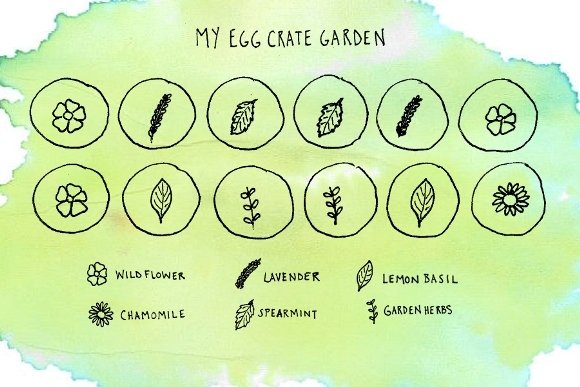 MY EGG CRATE GARDEN
WILDFLOWER
LAVENDER
LEMON BASIL
CHAMOMILE
SPEARMINT
GARDEN HERBS